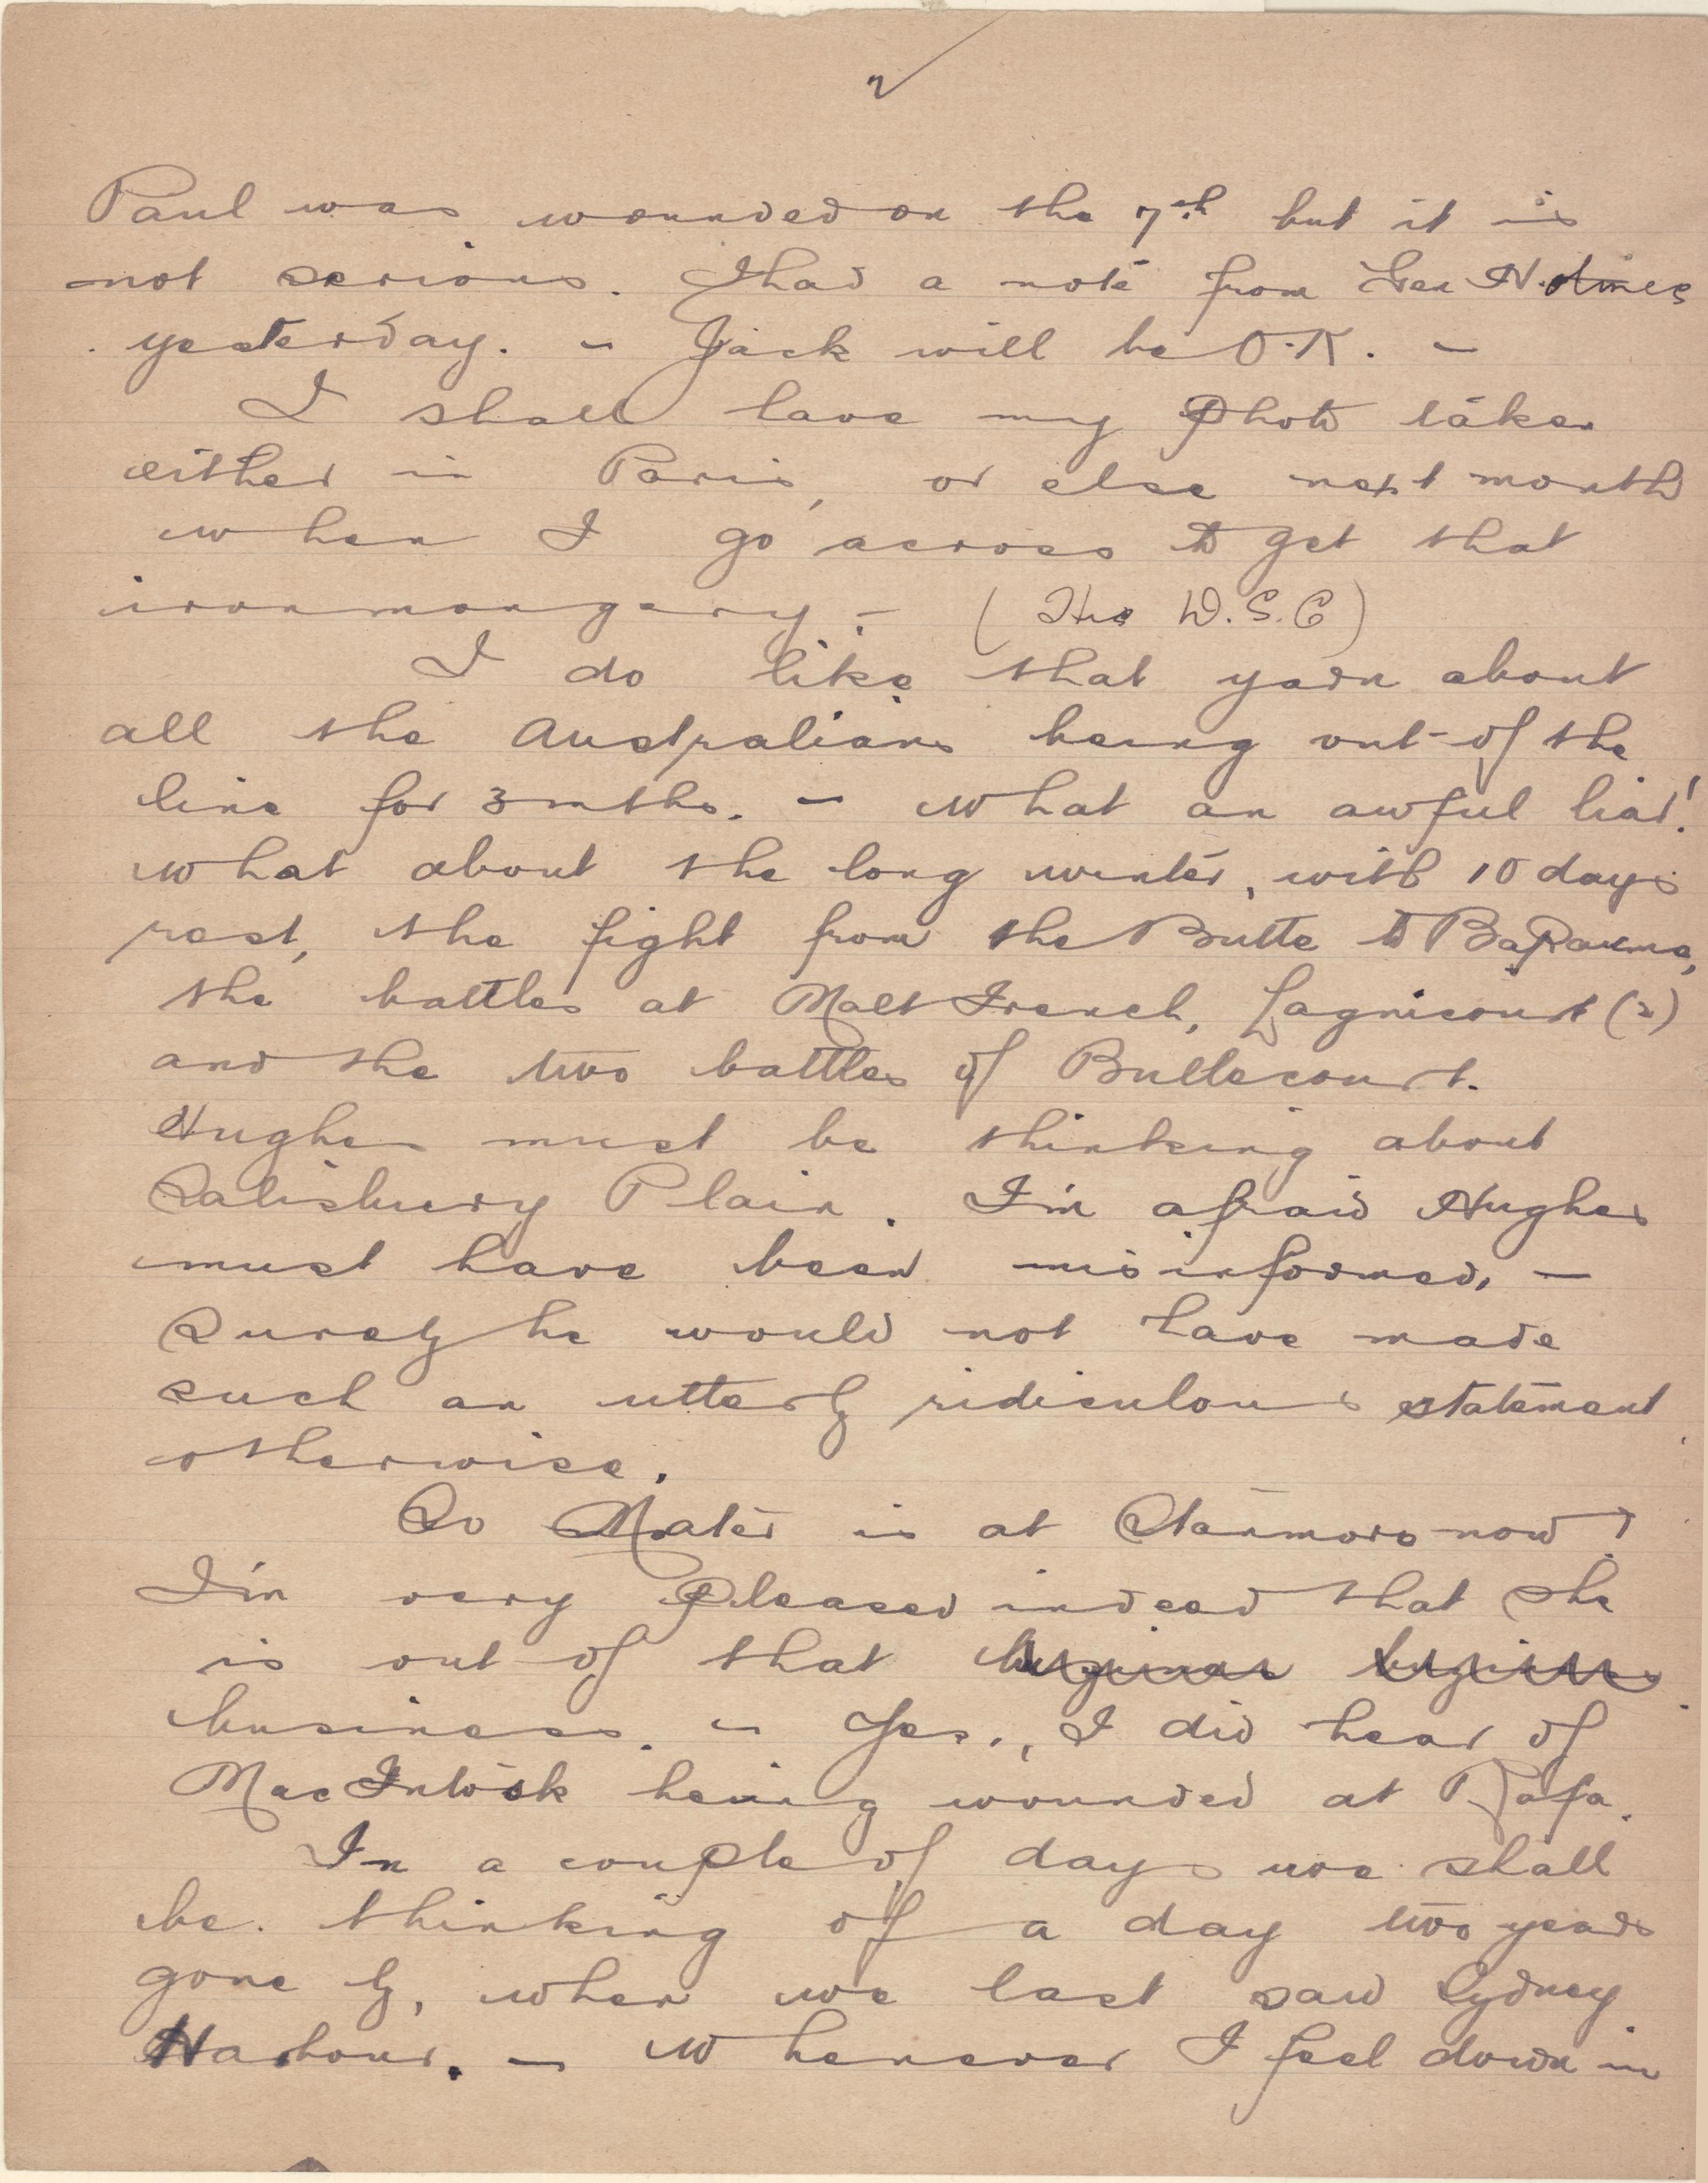 2
Paul was wounded on the 7th but it is
not serious. I had a note from Gen Holmes
yesterday. - Jack will be O.K. -
I shall have my photo taken
either in Paris, or else next month
when I go across to get that
ironmongery. - (The D.S.O)
I do like that yarn about
all the Australians being out of the
line for 3 mths. - What an awful liar!
What about the long winter, with 10 days
rest, the fight from the Butte to BaPaume,
the battles at Malt Trench, Lagnicourt (2)
and the two battles of Bullecourt.
Hughes must be thinking about
Salisbury Plain. I'm afraid Hughes
must have been misinformed, -
Surely he would not have made
such an utterly ridiculous statement
otherwise.
So Mater is at Stanmore now!
I'm very pleased indeed that she
is out of that
business. - Yes., I did hear of
MacIntosh being wounded at Rafa.
In a couple of days we shall
be. thinking of a day two years
gone by, when we last saw Sydney
Harbour. - Whenever I feel down in